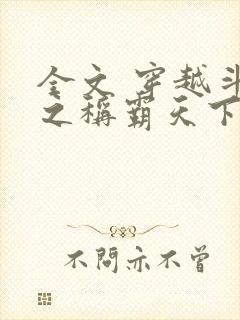 全文 穿越斗
之稱霸天下
不問亦不曾